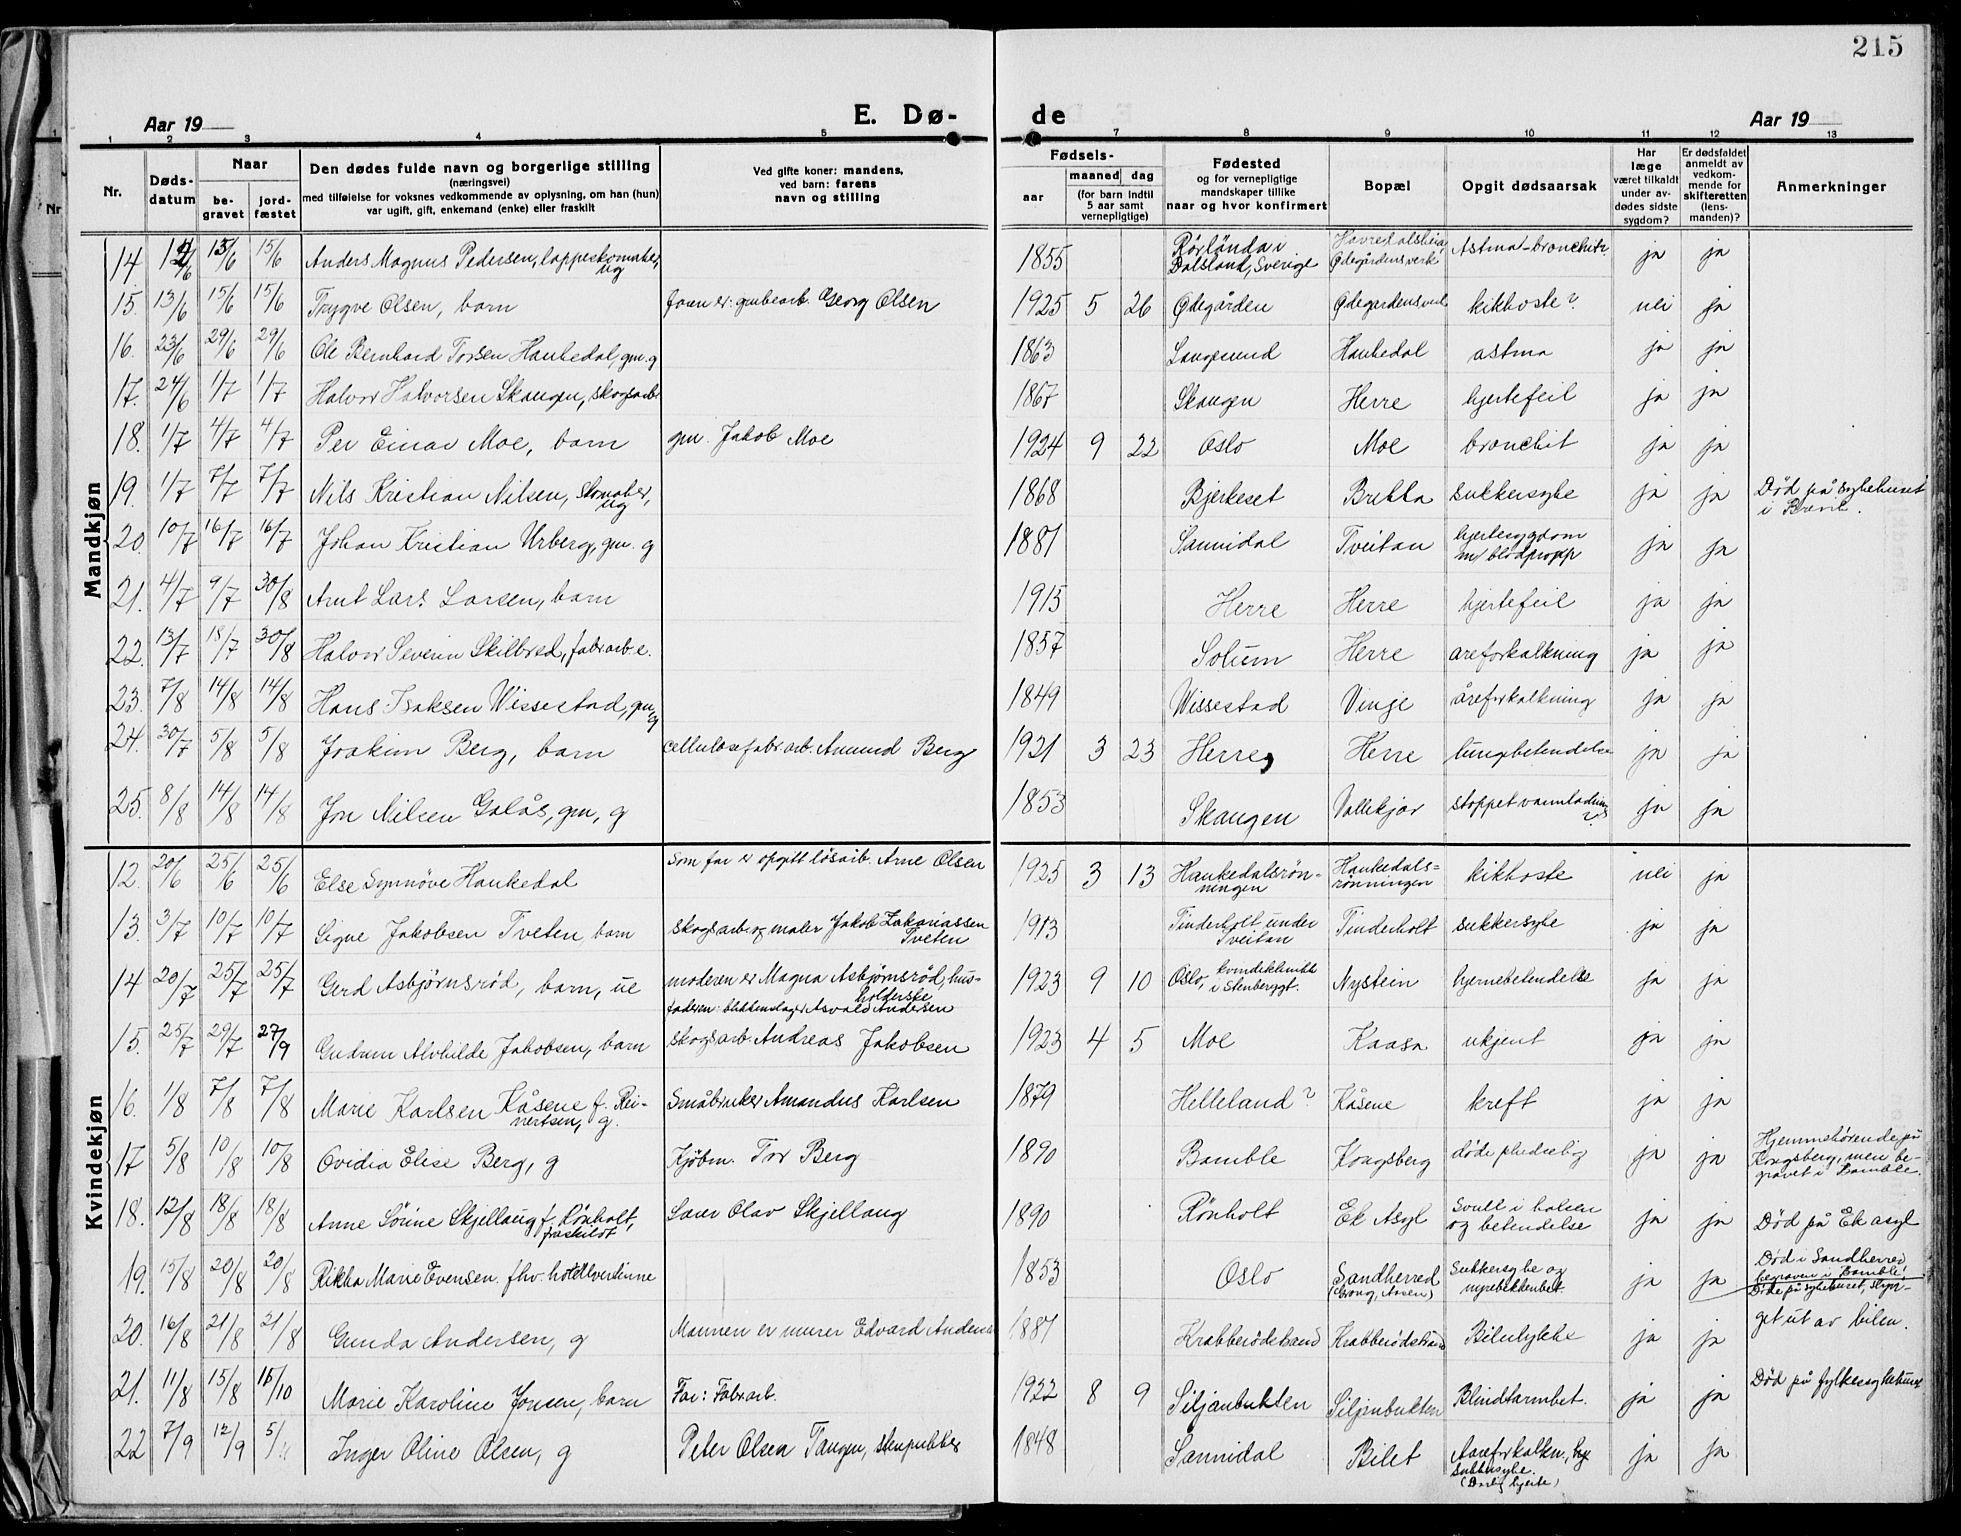 215
Aar 19 E. Dø- de Aar 19
1 2 3 4 5 7 8 9 10 11 12 13
Nr. Dødsdatum Naar begravet jordfæstet Den dødes fulde navn og borgerlige stilling (næringsvei) med tilføielse for voksnes vedkommende av oplysning, om han (hun) var ugift, gift, enkemand (enke) eller fraskilt Ved gifte koner: mandens, ved barn: farens navn og stilling Fødsels- aar maaned dag (for barn indtil 5 aar samt vernepligtige) Fødested og for vernepligtige mandskaper tillike naar og hvor konfirmert Bopæl Opgit dødsaarsak Har læge været tilkaldt under avdødes sidste sygdom? Er dødsfaldet anmeldt av vedkommende for skifteretten (lensmanden)? Anmerkninger
Mandkjøn
14 12/6 15/6 15/6 Anders Magnus Pedersen, lappeskomaker, ug 1855 Rørlanda i Dalsland, Sverige Havredalsheia, Ødegårdens verk Astma - bronchit ja ja
15. 13/6 15/6 15/6 Trygve Olsen, barn faren er: grubearb. Georg Olsen 1925 5 26 Ødegården Ødegardens verk kikhoste? nei ja
16. 23/6 29/6 29/6 Ole Bernhard Torsen Hankedal, gm. g 1863 Langsund Hankedal astma ja ja
17. 24/6 1/7 1/7 Halvor Halvorsen Skaugen, skogsarb 1867 Skaugen Herre hjertefeil ja ja
18. 1/7 4/7 4/7 Per Einar Moe, barn gm. Jakob Moe 1924 9 22 Oslo Moe bronchit ja ja
19. 1/7 7/7 7/7 Nils Kristian Nilsen, skomaker, ug 1868 Bjerkeset Brekka sukkersyke ja ja Død på sykehuset i Brevik.
20. 10/7 16/7 16/7 Johan Kristian Urberg, gm. g 1881 Sannidal Tveitan hjertesygdom m/ blodpropp ja ja
21. 4/7 9/7 30/8 Arnt Lars Larsen, barn 1915 Herre Herre hjertefeil ja ja
22. 13/7 18/7 30/8 Halvor Severin Skilbred, fabr.arb. e. 1857 Solum Herre areforkalkning ja ja
23. 7/8 14/8 14/8 Hans Isaksen Wissestad, gm, g 1849 Wissestad Vinje åreforkalkning ja ja
24. 30/7 5/8 5/8 Joakim Berg, barn cellulosefabr.arb. Amund Berg 1921 3 23 Herre, Herre lungebetendelse ja ja
25. 8/8 14/8 14/8 Jon Nilsen Galås, gm, g 1853 Skaugen Vallekjær stoppet vannladning ja ja
Kvindekjøn
12. 20/6 25/6 25/6 Else Synnöve Hankedal Som far er opgitt løsarb. Arne Olsen 1925 3 13 Hankedalsrønningen Hankedals=rønningen kikhoste nei ja
13. 3/7 10/7 10/7 Signe Jakobsen Tveten, barn Skogsarb. og maler Jakob Zakariassen Tveten 1913 Tinderholt under Tveitan Tinderholt sukkersyke ja ja
14 20/7 25/7 25/7 Gerd Asbjørnsrød, barn, ue moderen er Magna Asbjørnsrød, husholderske faderen: blikkenslager Asvald Andersen 1923 9 10 Oslo, kvindeklinikk i Stenberggt. Nystein hjernebetendelse ja ja
15. 25/7 29/7 27/9 Gudrun Alvhilde Jakobsen, barn Skogsarb. Andreas Jakobsen 1923 4 5 Moe Kaasa ukjent ja ja
16. 1/8 7/8 7/8 Marie Karlsen Kåsene f. Reinertsen, g. Småbruker Amandus Karlsen 1879 Helleland? Kåsene kreft ja ja
17 5/8 10/8 10/8 Ovidia Elise Berg, g Kjøbm. Tor Berg 1890 Bamble Kongsberg døde pludselig ja ja Hjemmehørende på Kongsberg, men begravet i Bamble.
18. 12/8 18/8 18/8 Anne Sörine Skjellaug f. Rönholt, fraskildt Olav Skjellaug 1890 Rönholt Ek Asyl Svull i halsen og betendelse ja ja Død på Ek asyl
19. 15/8 20/8 20/8 Rikka Marie Evensen. fhv. hotellvertinne 1853 Oslo Sandherred Sukkersyke og nyrebetendelse ja ja Død i Sandherred begraven i Bamble!
20. 16/8 21/8 21/8 Gunda Andersen, g Mannen er murer Edvard Andersen 1887 Krabberødstrand Krabberødstrand Bilulykke ja ja Døde på sykehuset, slynget ut av bilen.
21. 11/8 15/8 15/10 Marie Karoline Jonsen, barn Far: Fabr.arb. 1922 8 9 Siljanbukten Siljanbukten Blindtarmbet. ja ja Død på fylkessykehuset
22 7/9 12/9 5/ Inger Oline Olsen, g Peter Olsen Tangen, stenpukker 1848 Sannidal Bilet Aareforkalkn., Sukkersyke. (Darlig hjerte) ja ja